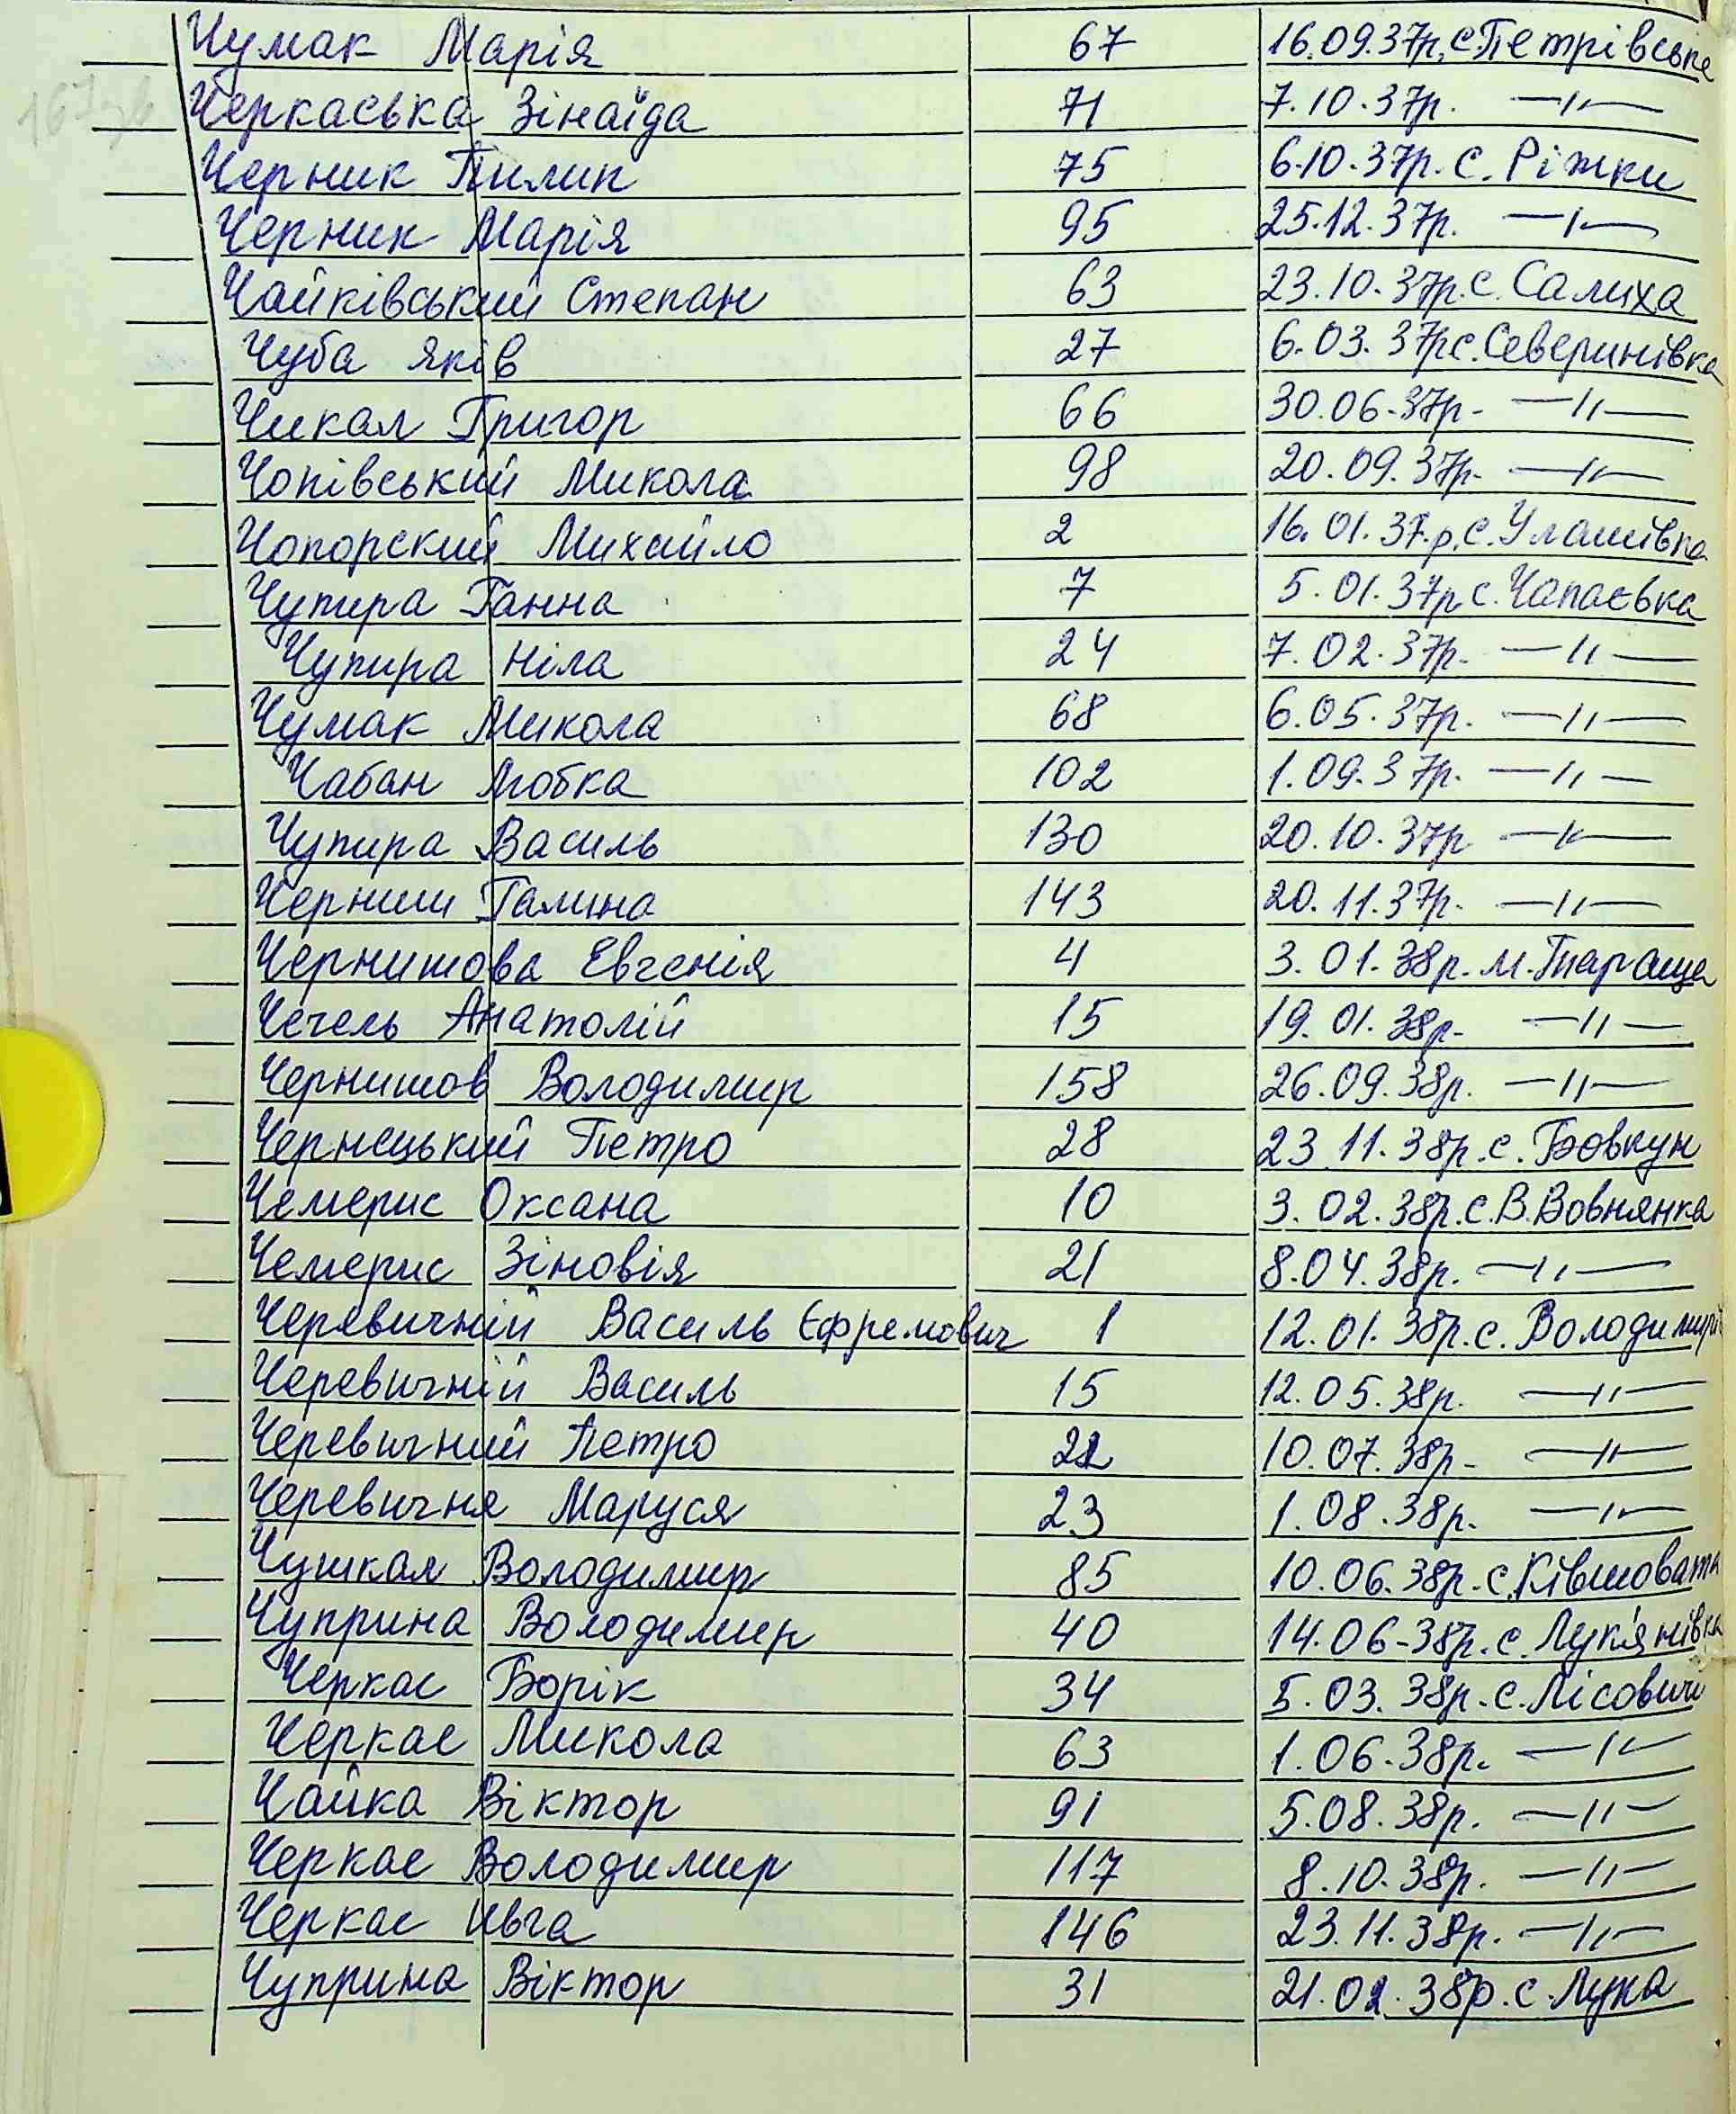 Чумак Марія 67 16.09.37р. с.Петрівське
Черкаська Зінаїда 71 7.10.37р. —"—
Черник Пилип 75 6.10.37р. с. Ріжки
Черник Марія 95 25.12.37р. —"—
Чайківський Степан 63 23.10.37р. с. Салиха
Чуба Яків 27 6.03.37р с. Северинівка
Чикал Григор 66 30.06.37р. —"—
Чопівський Микола 98 20.09.37р. —"—
Чопорский Михайло 2 16.01.37.р. с. Улашівка
Чупира Ганна 7 5.01.37р с. Чапаєвка
Чупира Ніла 24 7.02.37р. —"—
Чумак Микола 68 6.05.37р. —"—
Чабан Любка 102 1.09.37р. —"—
Чупира Василь 130 20.10.37р —"—
Черниш Галина 143 20.11.37р. —"—
Чернишова Евгенія 4 3.01.38р. м. Тараща
Чечель Анатолій 15 19.01.38р. —"—
Чернишов Володимир 158 26.09.38р. —"—
Чернецький Петро 28 23.11.38р. с. Бовкун
Чемерис Оксана 10 3.02.38р. с. В.Вовнянка
Чемерис Зіновія 21 8.04.38р. —"—
Черевичній Василь Єфремович 1 12.01.38р. с. Володимирів
Черевичній Василь 15 12.05.38р. —"—
Черевичний Петро 22 10.07.38р. —"—
Черевичня Маруся 23 1.08.38р. —"—
Чушкал Володимир 85 10.06.38р. с. Ківшовата
Чуприна Володимир 40 14.06.38р. с. Лук'янівка
Черкас Борік 34 5.03.38р. с. Лісовичі
Черкас Микола 63 1.06.38р. —"—
Чайка Віктор 91 5.08.38р. —"—
Черкас Володимир 117 8.10.38р. —"—
Черкас Ивга 146 23.11.38р. —"—
Чуприна Віктор 31 21.02.38р. с. Лука